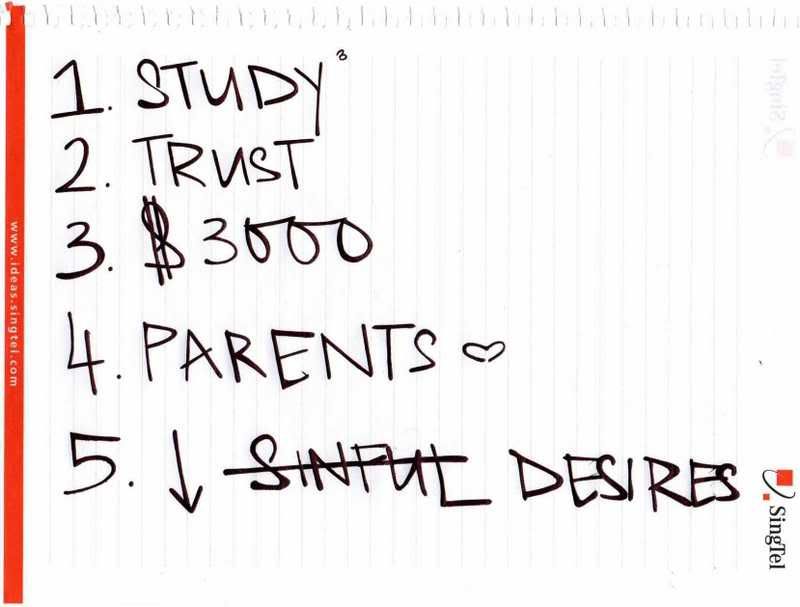 1. STUDY ³
2. TRUST
3. $3000
4. PARENTS ♡
5. ↓ ~~SINFUL~~ DESIRES
www.ideas.singtel.com
SingTel
SingTel